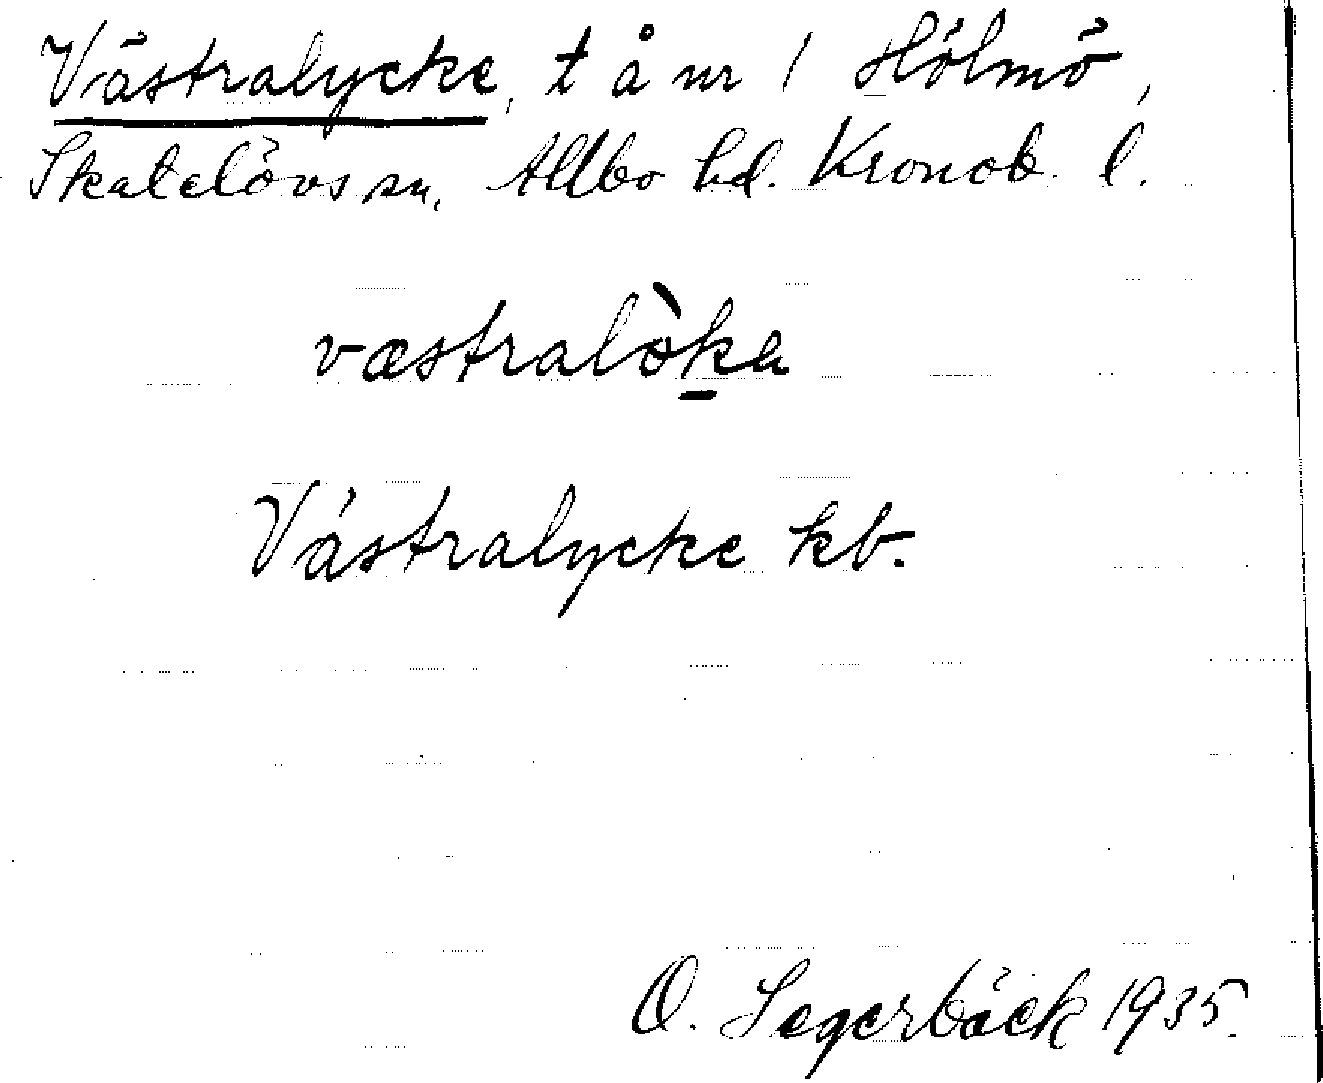 Västralycke, t å nr 1 Hölmö,
Skatelövs sn, Allbo hd. Kronob. l.
væstralòka
Västralycke kb.
O. Segerbäck 1935.